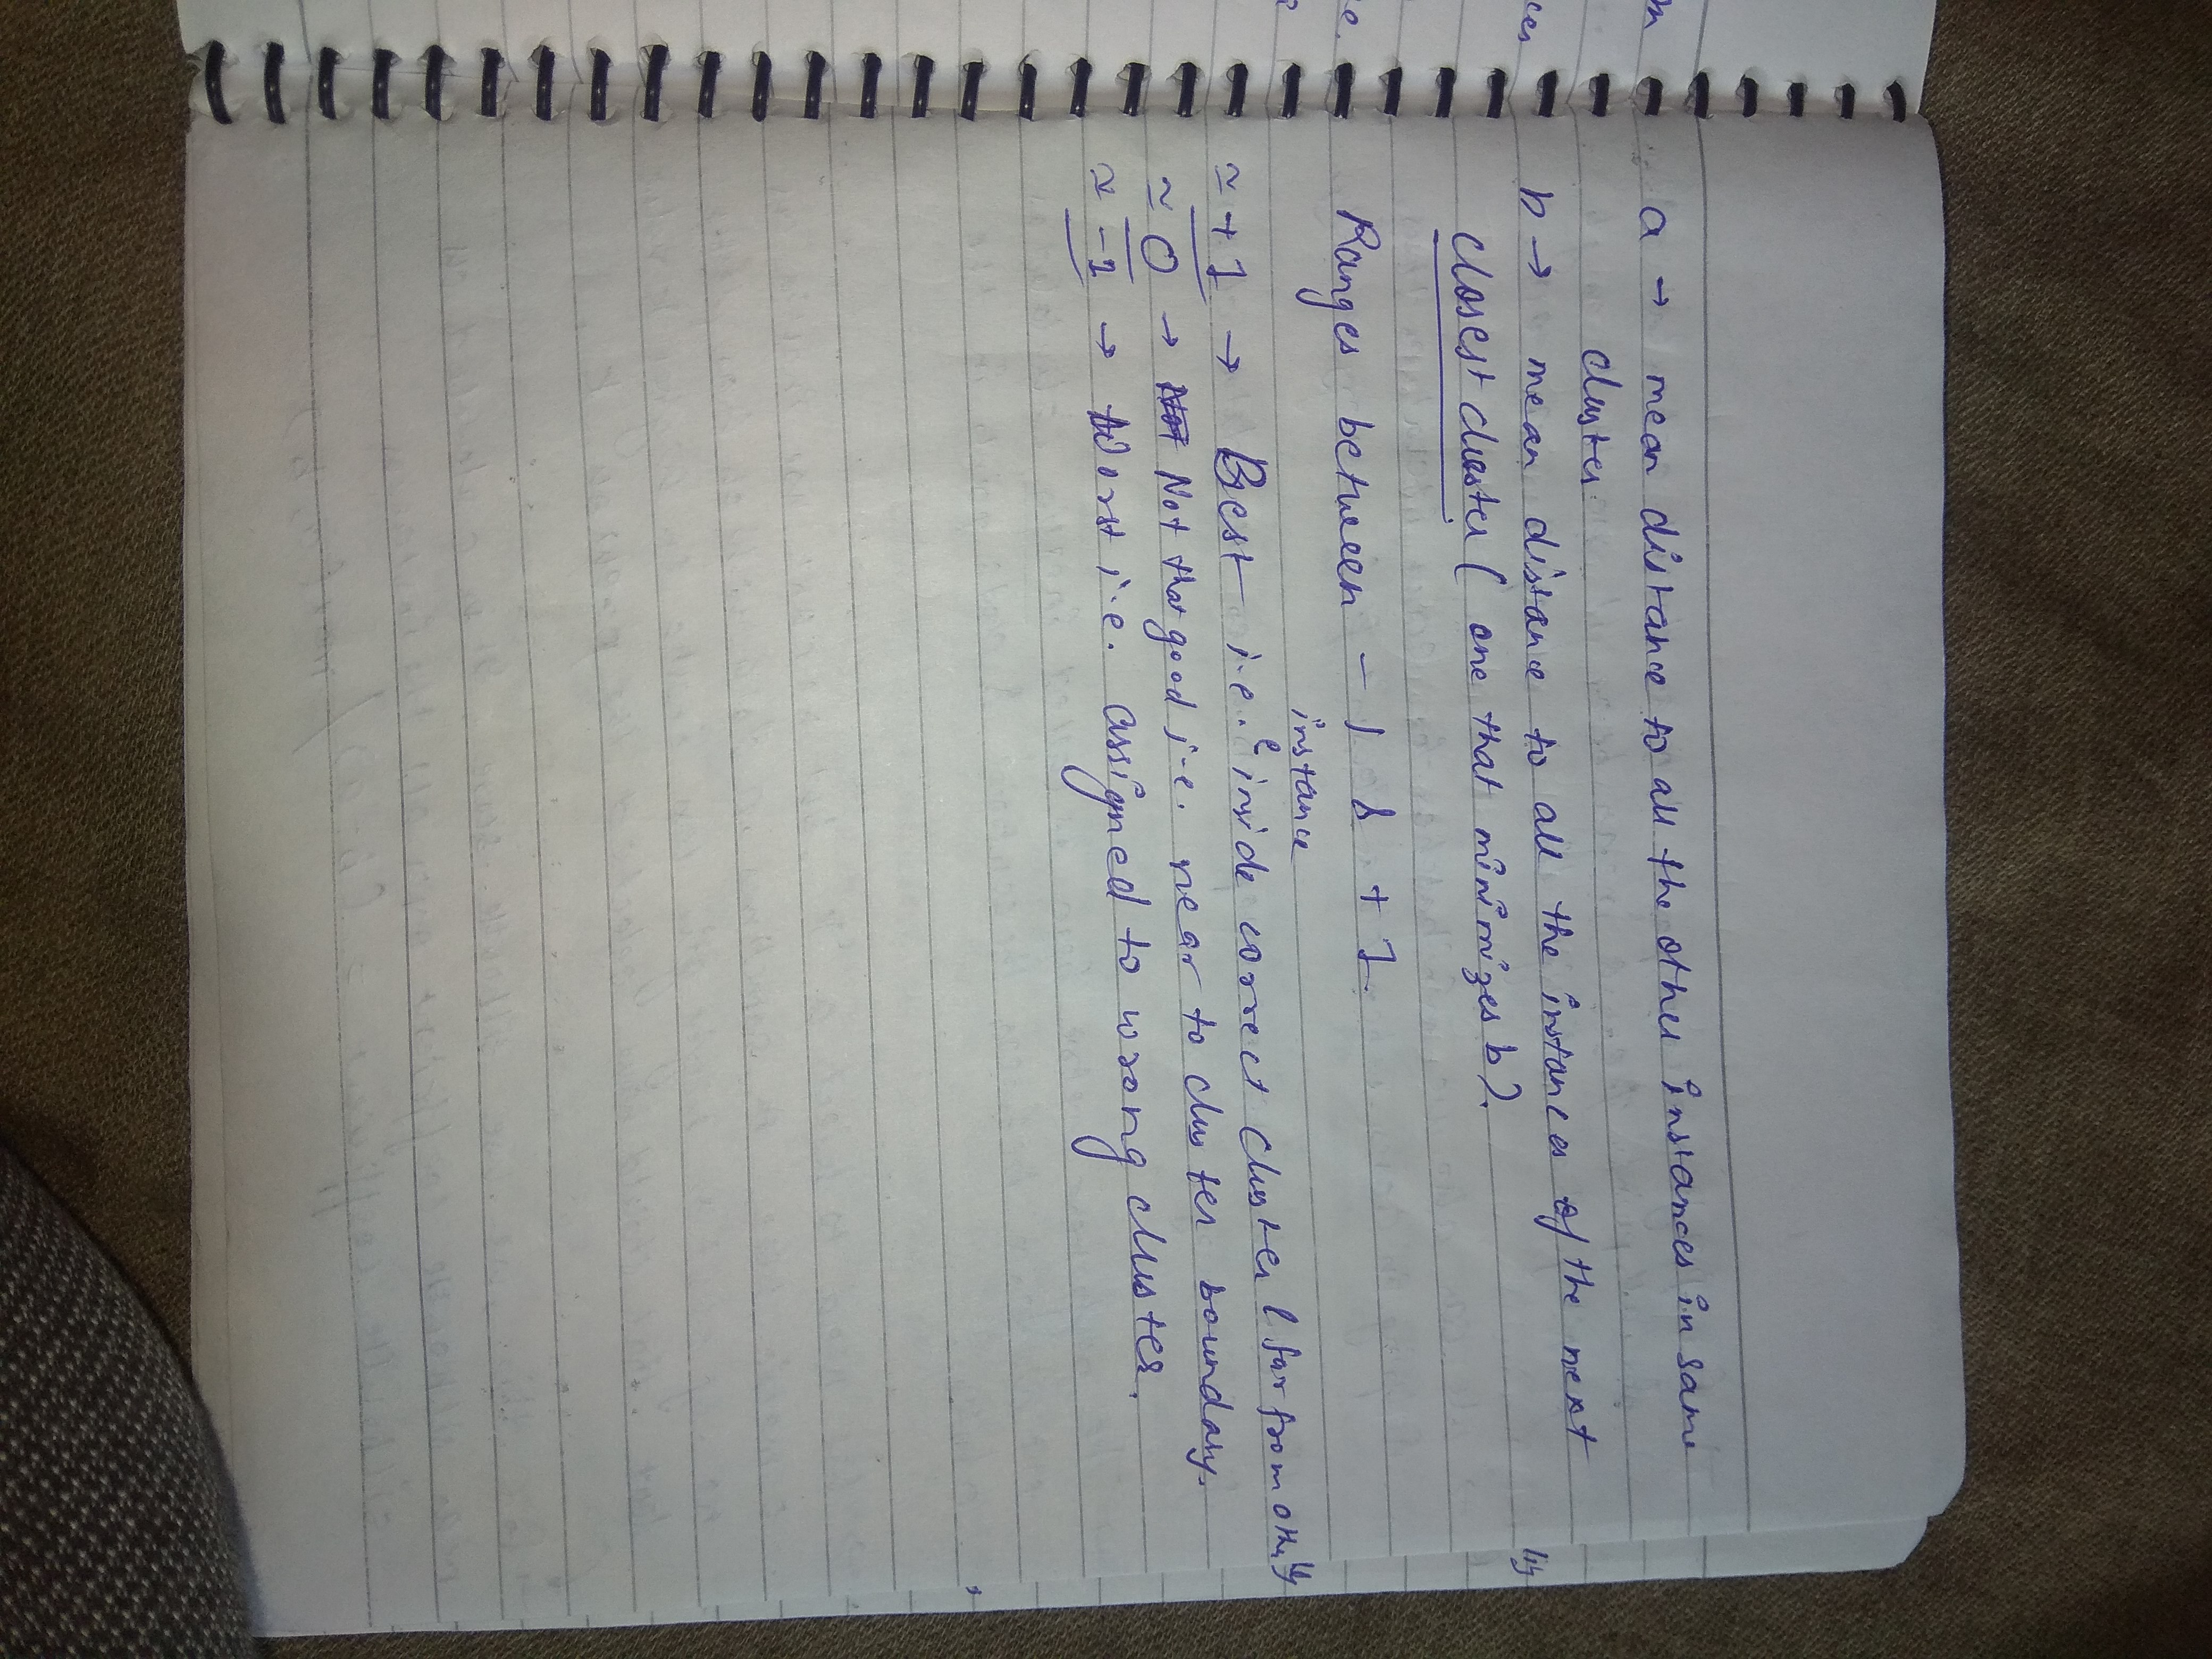 a → mean distance to all the other instances in same
cluster.
b → mean distance to all the instances of the next
closest cluster (one that minimizes b).
Ranges between -1 & +1.
instance
≃ +1 → Best i.e. inside correct cluster (far from other
≃ 0 → Not that good i.e. near to cluster boundary.
≃ -1 → Worst i.e. assigned to wrong cluster.